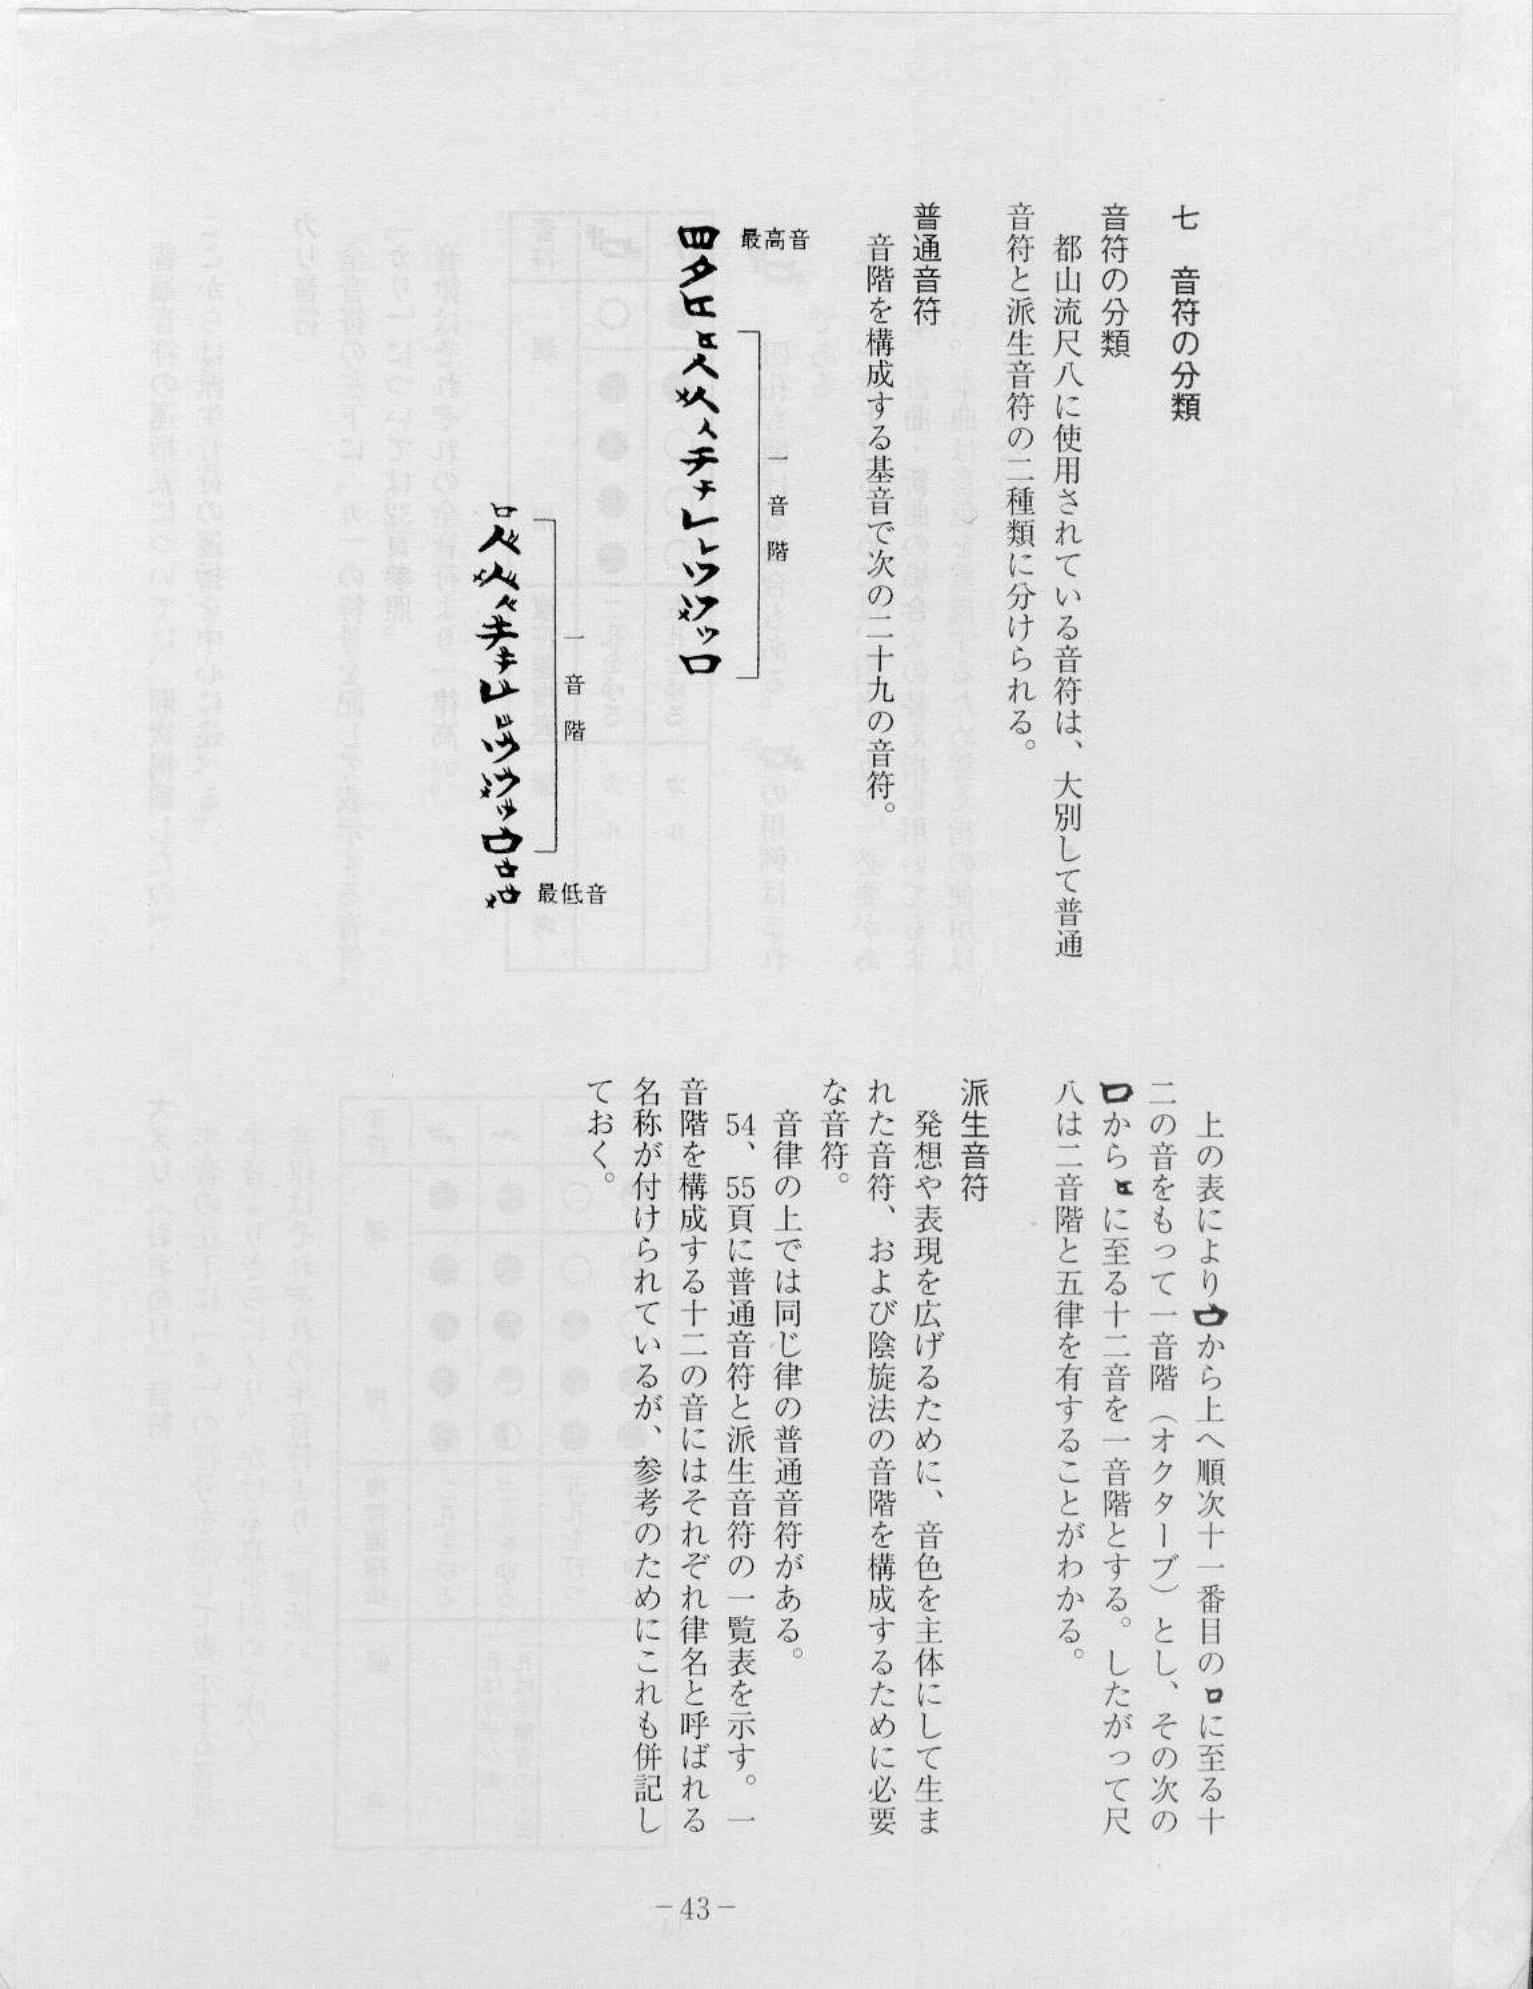 七　音符の分類
音符の分類
都山流尺八に使用されている音符は、大別して普通
音符と派生音符の二種類に分けられる。
普通音符
音階を構成する基音で次の二十九の音符。
最高音
一音階
一音階
最低音
上の表により から上へ順次十一番目のロに至る十
二の音をもって一音階（オクターブ）とし、その次の
ロから に至る十二音を一音階とする。したがって尺
八は二音階と五律を有することがわかる。
派生音符
発想や表現を広げるために、音色を主体にして生ま
れた音符、および陰旋法の音階を構成するために必要
な音符。
音律の上では同じ律の普通音符がある。
54、55頁に普通音符と派生音符の一覧表を示す。一
音階を構成する十二の音にはそれぞれ律名と呼ばれる
名称が付けられているが、参考のためにこれも併記し
ておく。
－43－